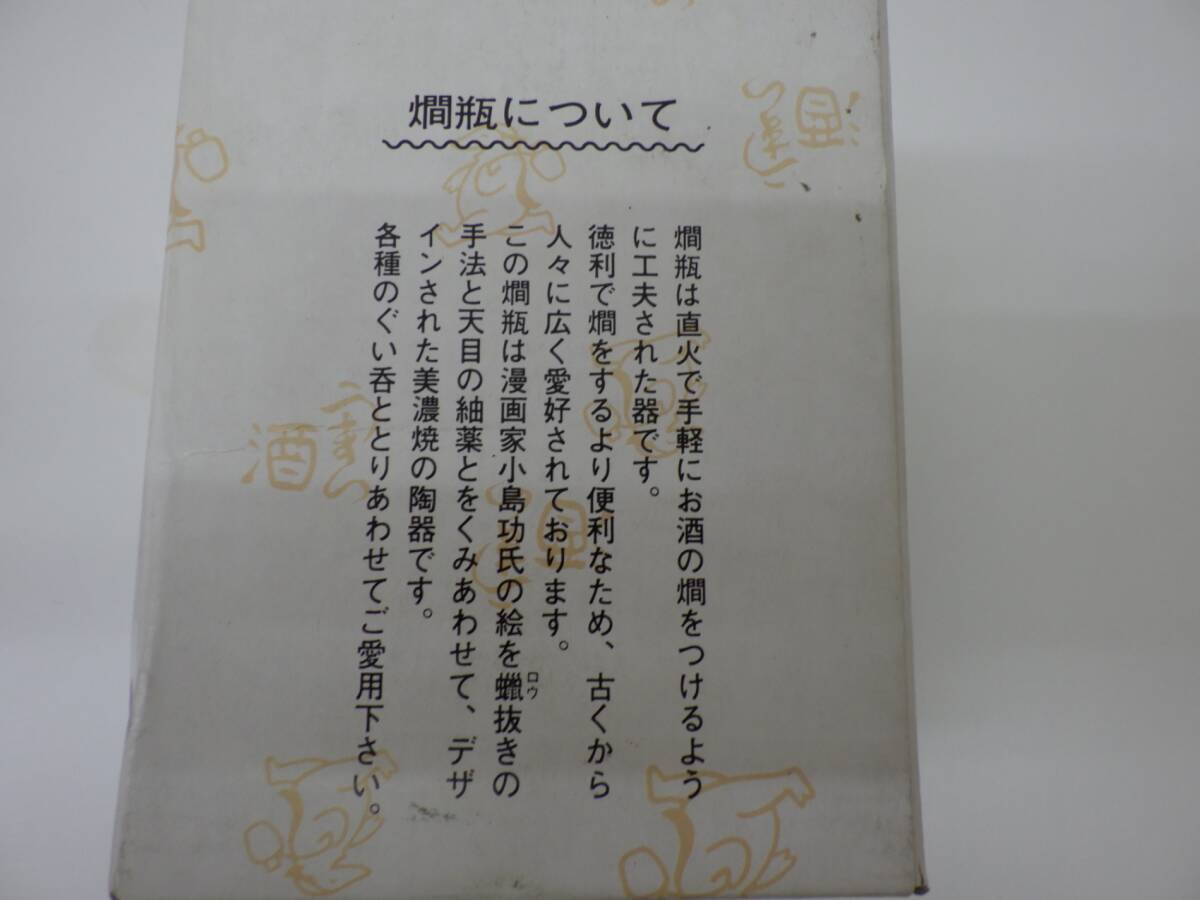 燗瓶について
燗瓶は直火で手軽にお酒の燗をつけるよう
に工夫された器です。
徳利で燗をするより便利なため、古くから
人々に広く愛好されております。
この燗瓶は漫画家小島功氏の絵を蠟抜きの
ロウ
手法と天目の紬薬とをくみあわせて、デザ
インされた美濃焼の陶器です。
各種のぐい呑ととりあわせてご愛用下さい。
酒